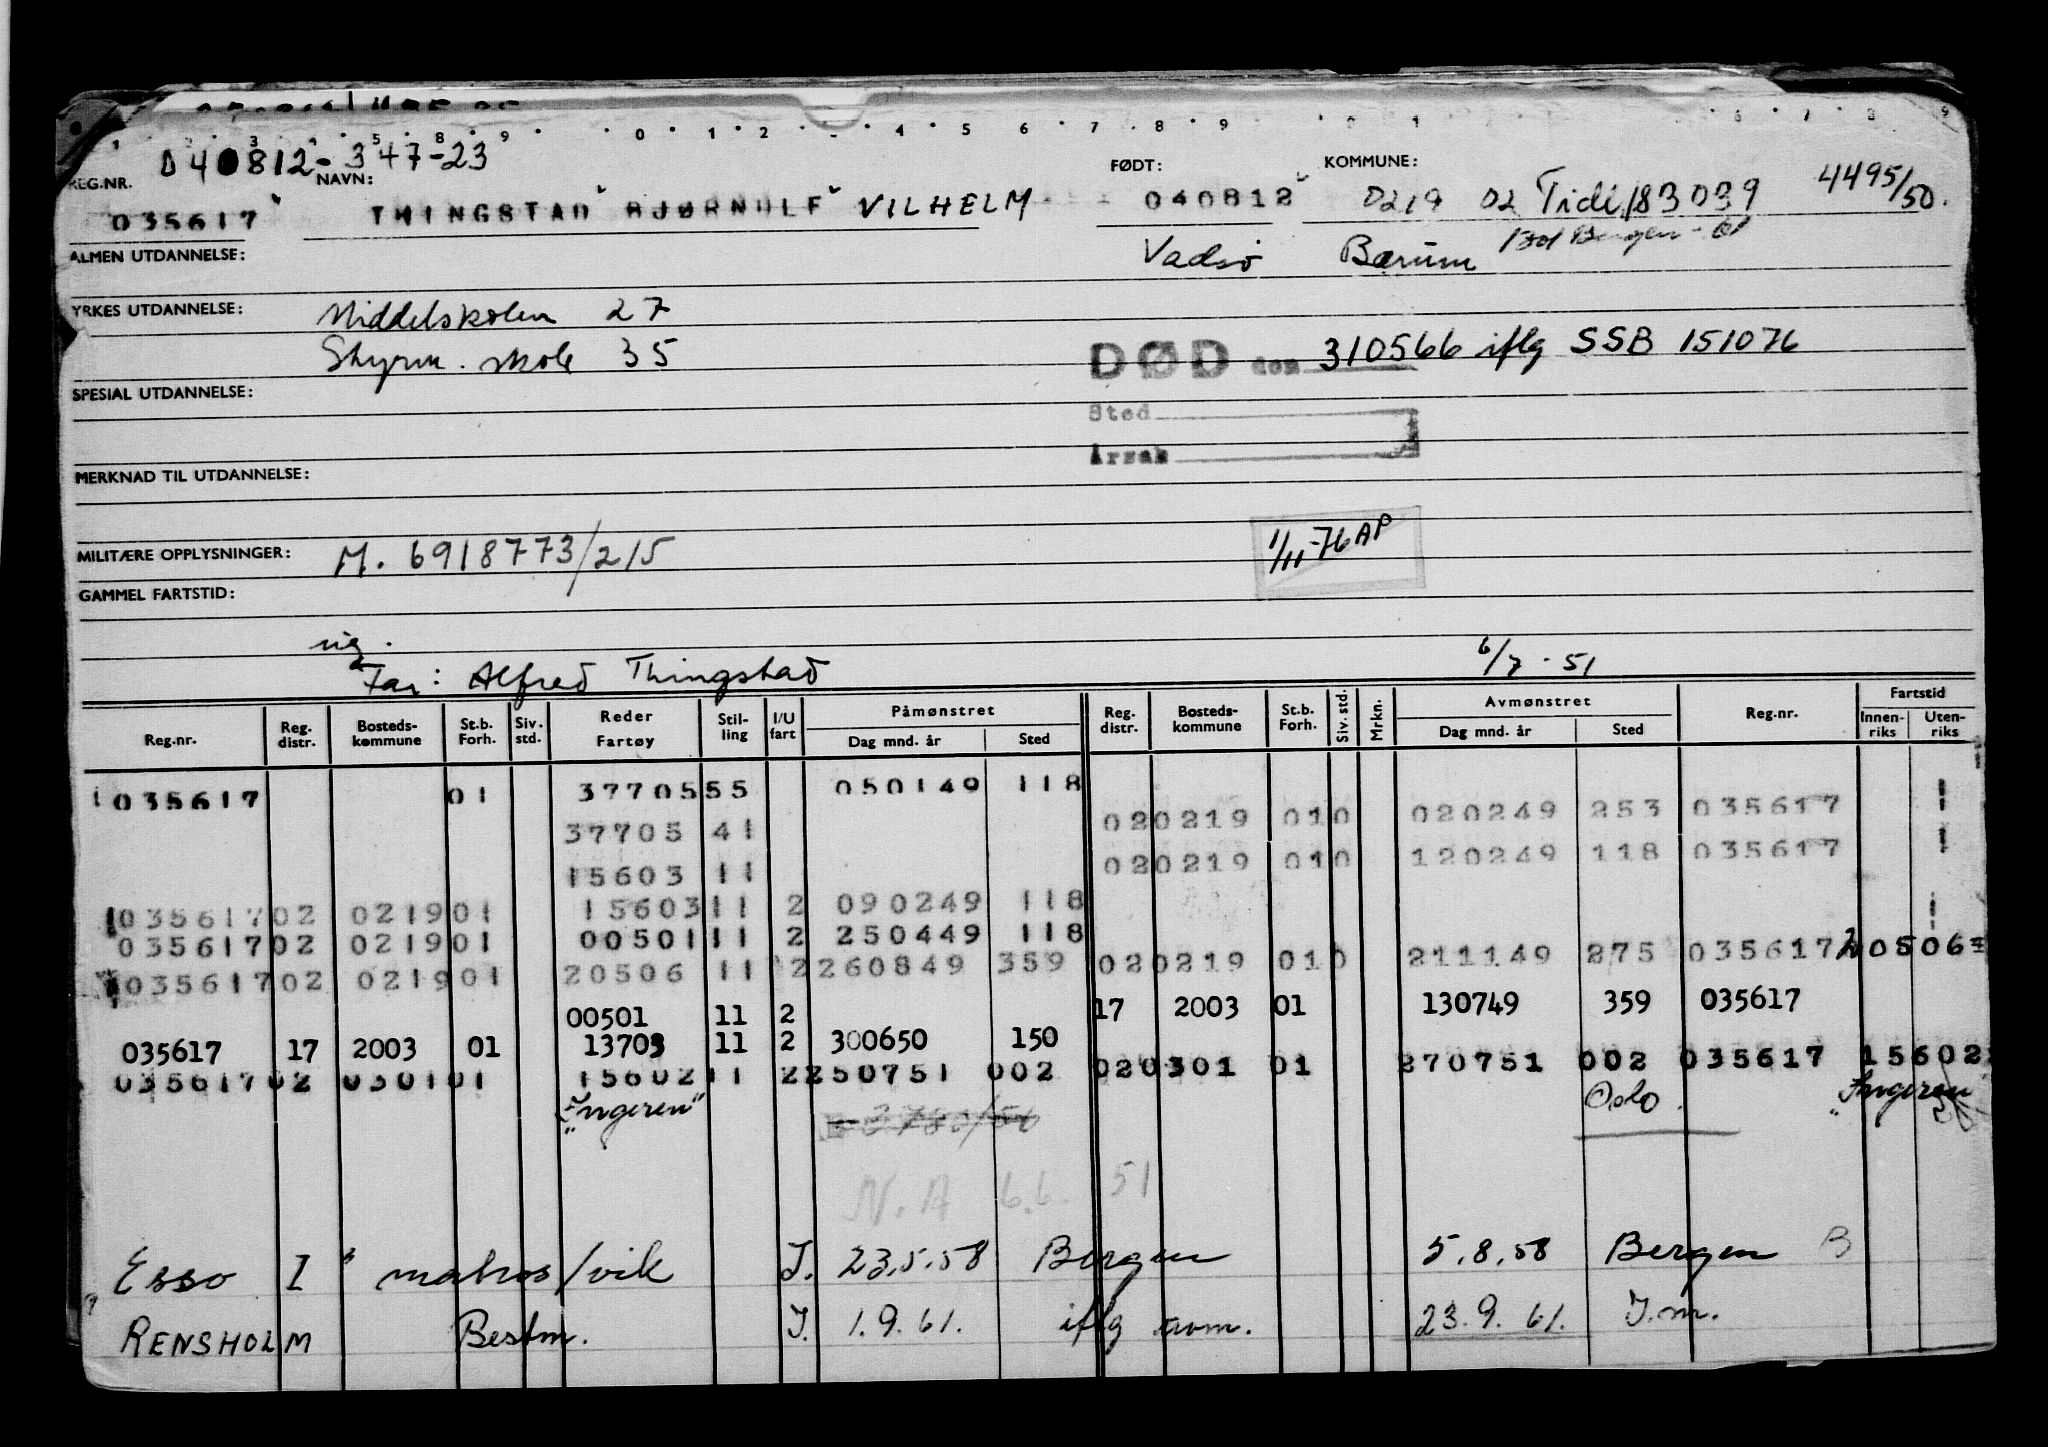 040812-347-23
REG.NR. NAVN: FØDT: KOMMUNE: 4495/50.
035617 THINGSTAD BJØRNULF VILHELM 040812 0219 02 Tidl. 183039
ALMEN UTDANNELSE: Vadsø Bærum
YRKES UTDANNELSE: Middelskolen 27
Styrm. skole 35 DØD den 310566 iflg SSB 151076
SPESIAL UTDANNELSE: Sted
Årsak
MERKNAD TIL UTDANNELSE:
1/11-76 AP
MILITÆRE OPPLYSNINGER: M. 6918773/215
GAMMEL FARTSTID:
6/7-51
Far: Alfred Thingstad
Reg.nr. Reg. distr. Bosteds-kommune St.b. Forh. Siv. std. Reder Fartøy Stil-ling I/U fart Påmønstret Dag mnd. år Sted Reg. distr. Bosteds-kommune St.b. Forh. Siv. std. Mrkn. Avmønstret Dag mnd. år Sted Reg.nr. Fartstid Innen-riks Uten-riks
035617 01 37705 55 050149 118
37705 41 02 0219 010 020249 253 035617
15603 11 02 0219 010 120249 118 035617
035617 02 0219 01 15603 11 2 090249 118
035617 02 0219 01 00501 11 2 250449 118
035617 02 0219 01 20506 11 2 260849 359 02 0219 010 211149 275 035617 20506
00501 11 2 17 2003 01 130749 359 035617
035617 17 2003 01 13703 11 2 300650 150
035617 02 0301 01 15602 11 2 250751 002 02 0301 01 270751 002 035617 15602
"Ingeren" Oslo. "Ingeren"
N.A 6.6. 51
Esso I matros/vik I. 23.5.58 Bergen 5.8.58 Bergen B
RENSHOLM Bestm. I. 1.9.61. iflg 23.9.61. I.m.